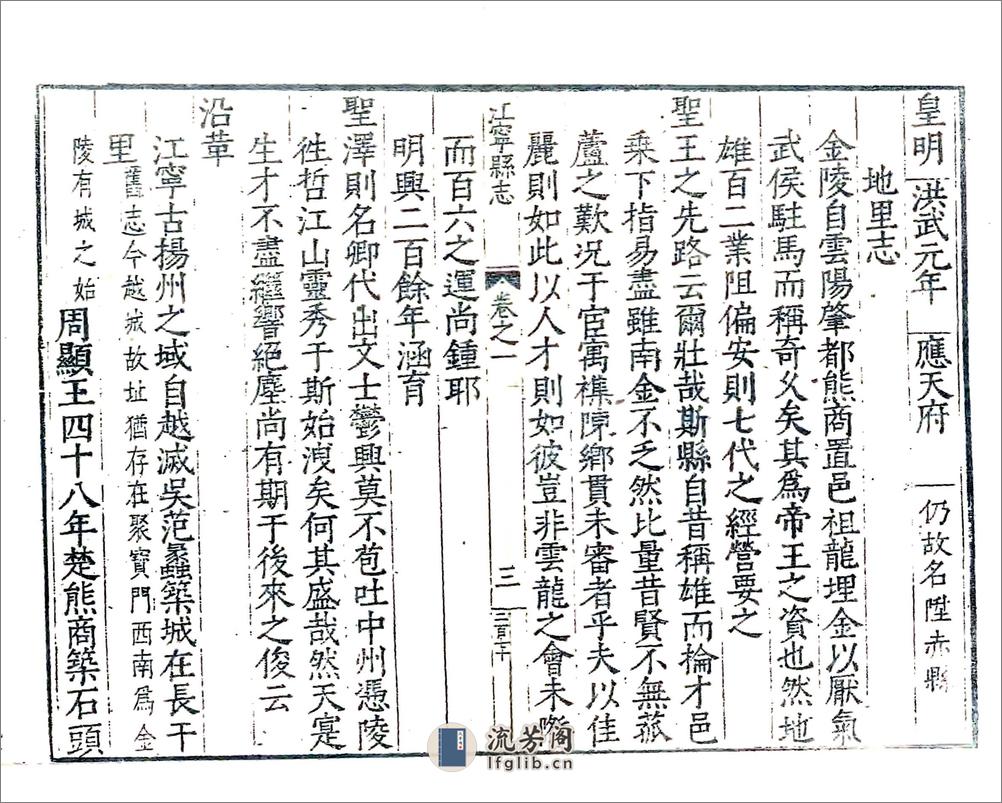 皇明 洪武元年 應天府 仍故名陞赤縣
地里志
金陵自雲陽肇都熊商置邑祖龍埋金以厭氣
武侯駐馬而稱奇久矣其爲帝王之資也然地
雄百二業阻偏安則七代之經營要之
聖王之先路云爾壯哉斯縣自昔稱雄而掄才邑
乗下指易盡雖南金不乏然比量昔賢不無菰
蘆之歎況于官寓襍陳鄉貫未審者乎夫以佳
麗則如此以人才則如彼豈非雲龍之會未
江寧縣志 卷之一 三 三百二十
而百六之運尚鍾耶
明興二百餘年涵育
聖澤則名卿代出文士鬱興莫不苞吐中州憑陵
徃哲江山靈秀于斯始洩矣何其盛哉然天寔
生才不盡繼響絕塵尚有期于後來之俊云
沿革
江寧古揚州之域自越滅吳范蠡築城在長干
里舊志今越城故址猶存在聚寶門西南爲金
陵有城之始周顯王四十八年楚熊商築石頭
流芳阁
lfglib.cn